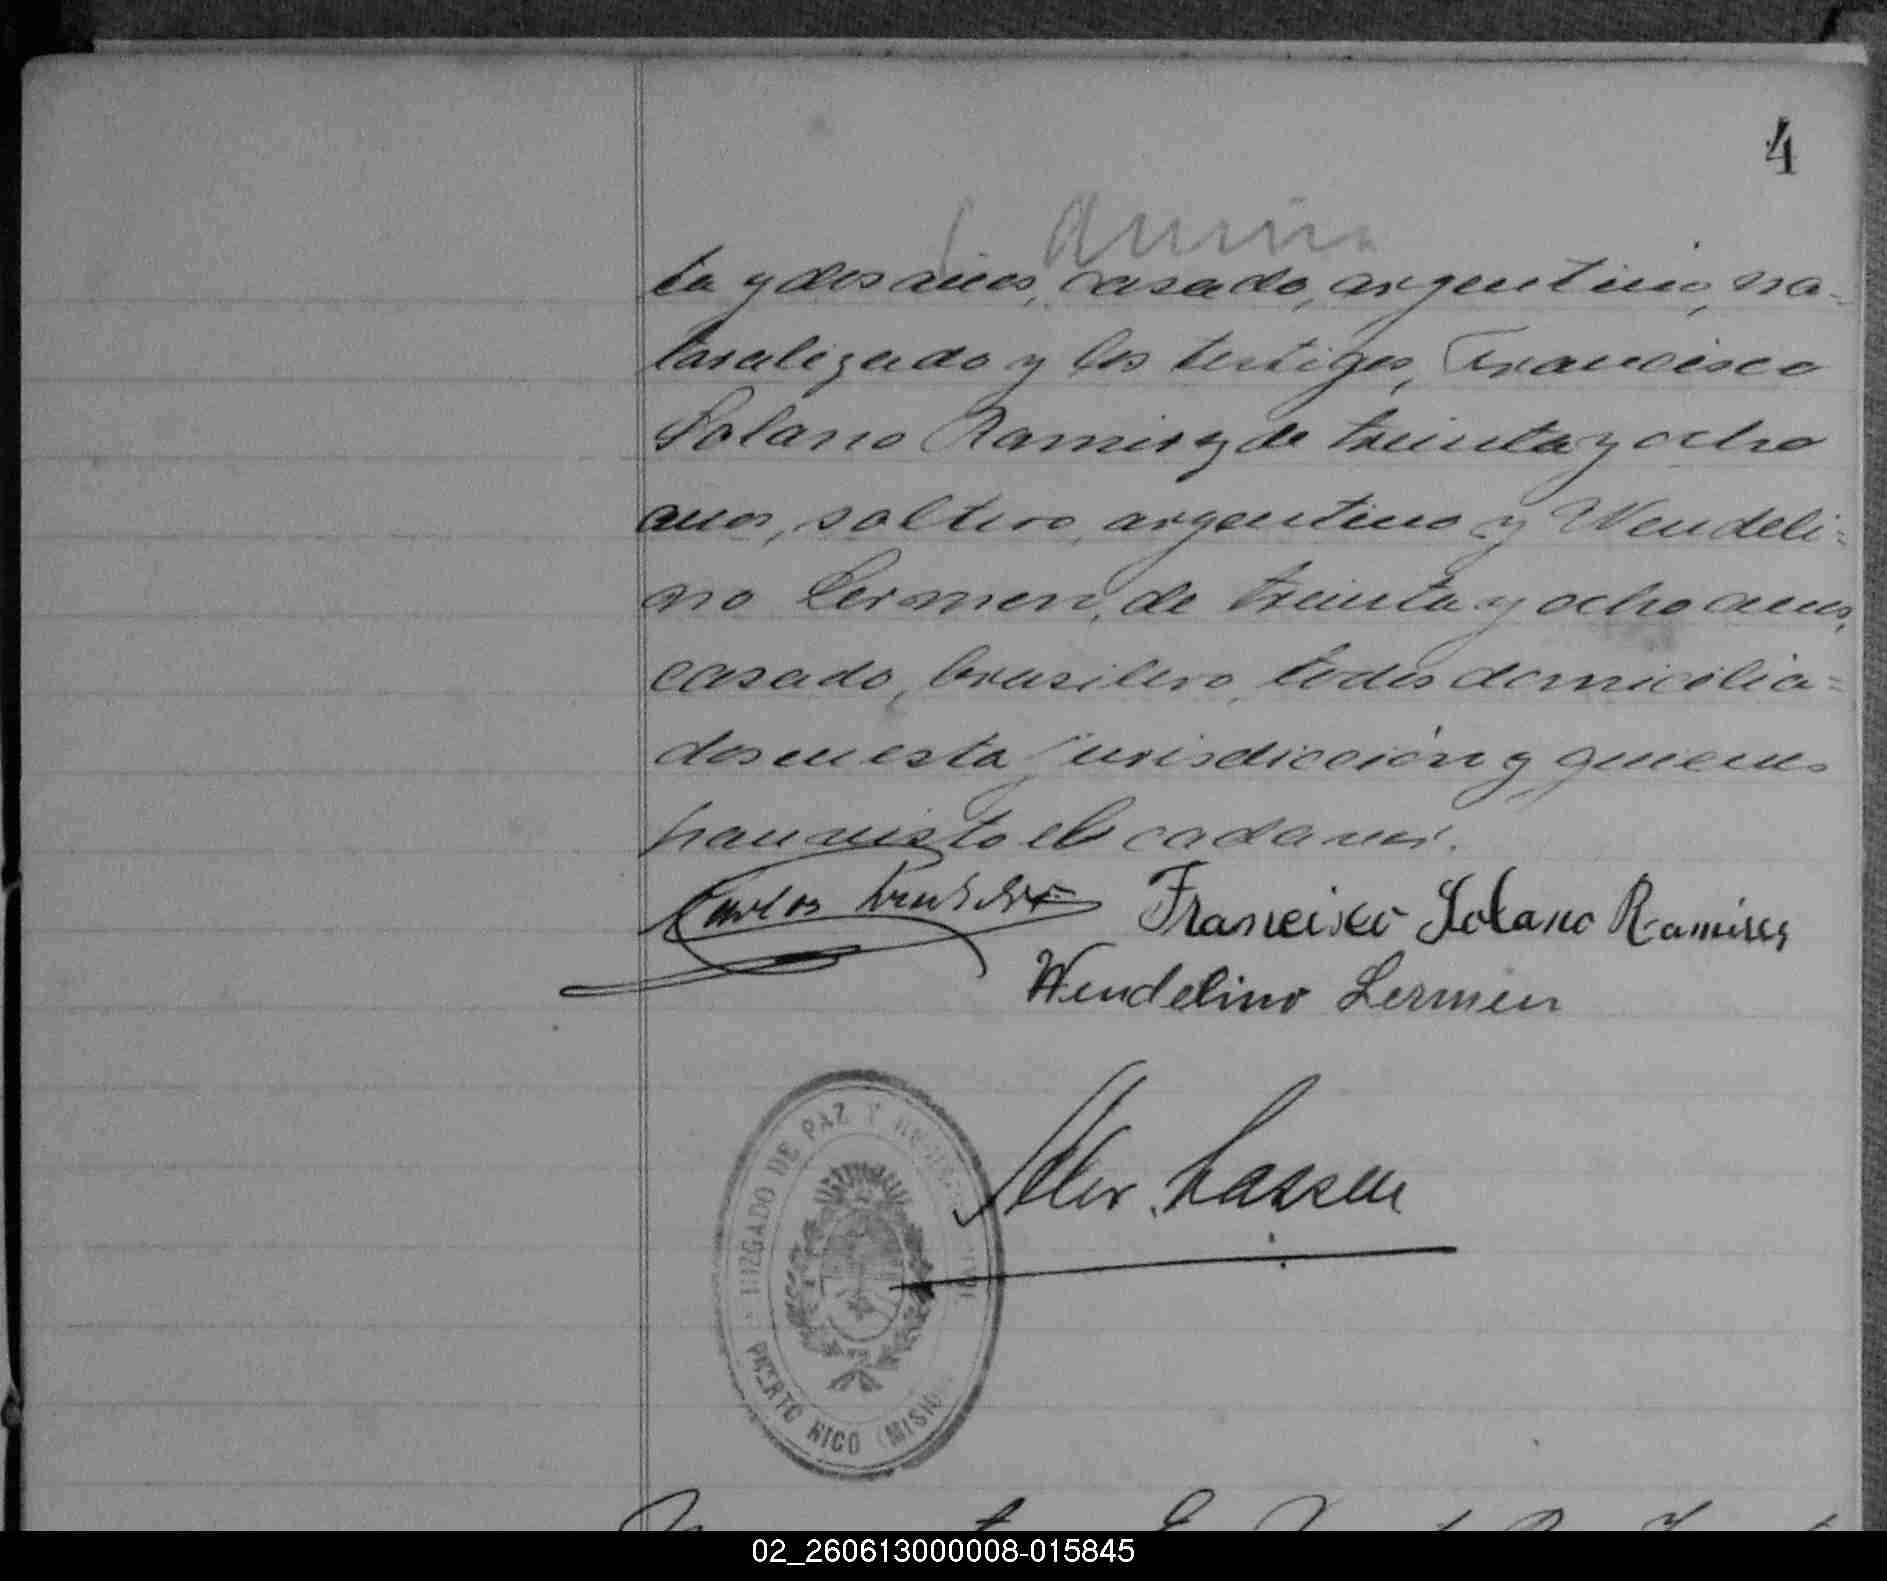 4
ta y dos años, casado, argentino, na-
turalizado y los testigos, Francisco
Solano Ramirez de treinta y ocho
anos, soltero, argentino y Wendeli=
no Lermen, de treinta y ocho anos,
casado, brasilero, todos domicilia=
dos en esta jurisdicción y quienes
han visto el cadaver.
Carlos
Francisco Solano Ramires
Wendelino Lermen
Alex. Lassen
JUZGADO DE PAZ Y
PUERTO RICO (MISIO
02_260613000008-015845